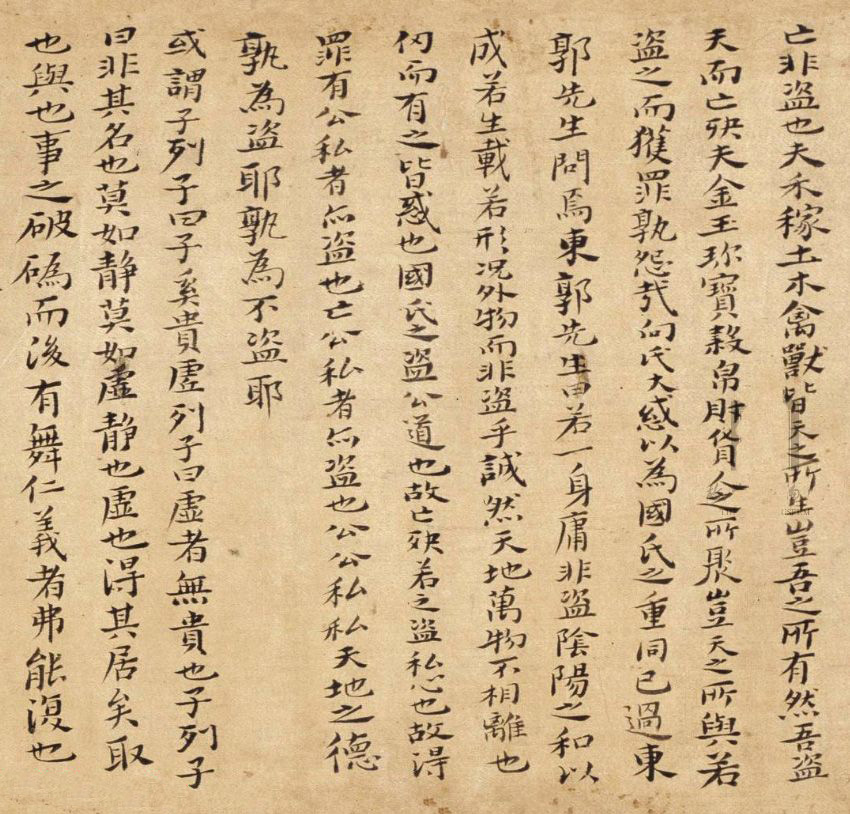 亡非盗也夫禾稼土木禽獸皆天之所生豈吾之所有然吾盗
天而亡殃夫金玉珎寶穀帛財貨人之所聚豈天之所與若
盗之而獲罪孰怨哉向氏大惑以為國氏之重罔己過東
郭先生問焉東郭先生曰若一身庸非盗陰陽之和以
成若生載若形况外物而非盗乎誠然天地萬物不相離也
仞而有之皆惑也國氏之盗公道也故亡殃若之盗私心也故得
罪有公私者亦盗也亡公私者亦盗也公公私私天地之德
孰為盗耶孰為不盗耶
或謂子列子曰子奚貴虛列子曰虛者無貴也子列子
曰非其名也莫如静莫如虛静也虛也淂其居矣取
也與也事之破䃣而後有舞仁義者弗能復也